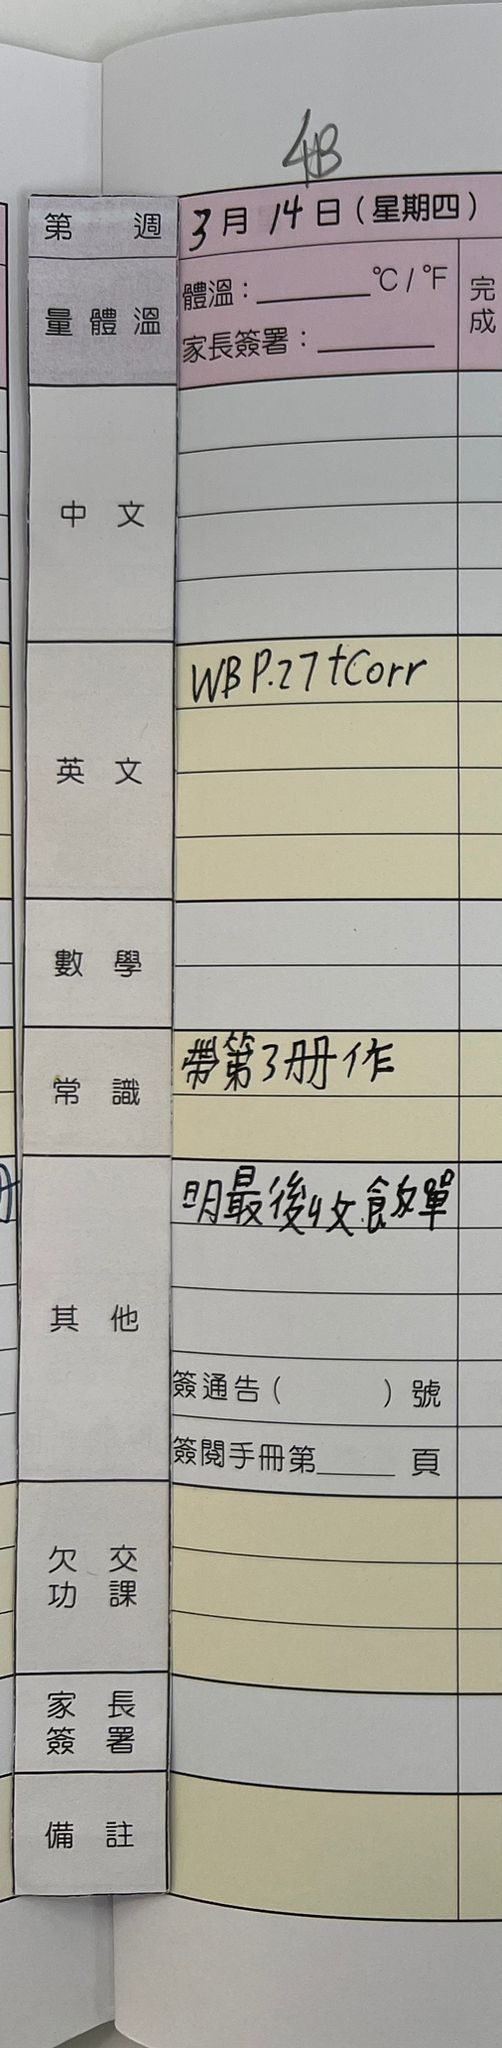 4B
第 週 3月14日(星期四)
量體溫 體溫:______°C/°F 完成
家長簽署:______
中文
英文 WB P.27+Corr
數學
常識 帶第3冊作
其他 明最後收飯單
簽通告( )號
簽閱手冊第____頁
欠交功課
家長簽署
備註